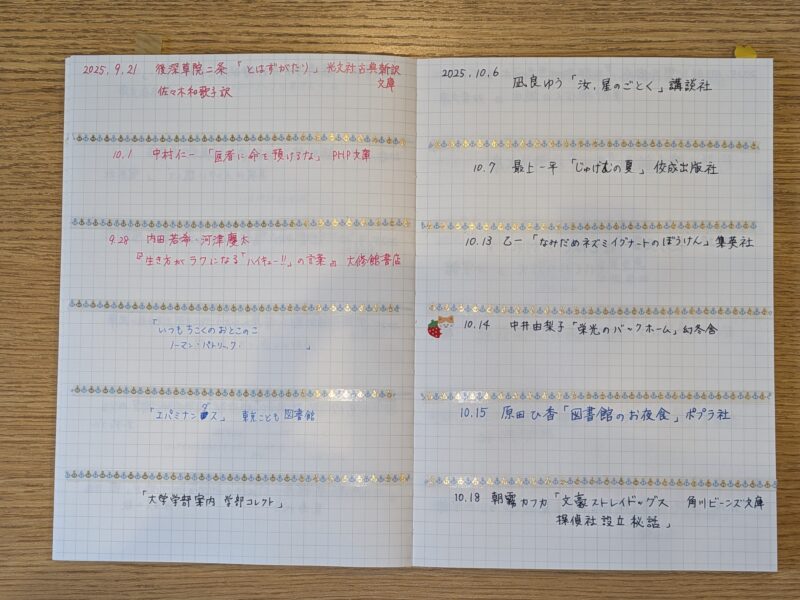 2025.9.21 後深草院二条「とはずがたり」光文社古典新訳
文庫
佐々木和歌子訳
10.1 中村仁一「医者に命を預けるな」PHP文庫
9.28 内田若希・河津慶太
『生き方がラクになる「ハイキュー!!」の言葉』大修館書店
「いつもちこくのおとこのこ
ノーマン・パトリック・ 」
「エパミナンダス」 東京こども図書館
「大学学部案内 学部コレクト」
2025.10.6 凪良ゆう「汝、星のごとく」講談社
10.7 最上一平「じゅげむの夏」佼成出版社
10.13 乙一「なみだめネズミイグナートのぼうけん」集英社
10.14 中井由梨子「栄光のバックホーム」幻冬舎
10.15 原田ひ香「図書館のお夜食」ポプラ社
10.18 朝霧カフカ「文豪ストレイドッグス 角川ビーンズ文庫
探偵社設立秘話」